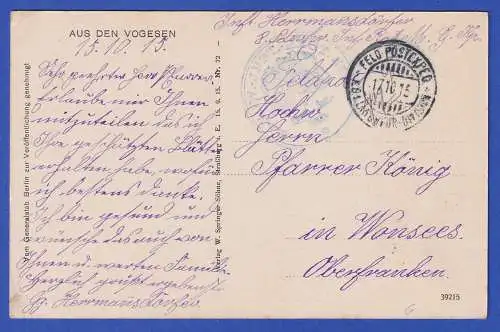 AUS DEN VOGESEN
15.10.15.
Sehr geehrter Herr Pfarrer!
Erlaube mir Ihnen
mitzuteilen das ich
Ihre geschätzten Blätter
erhalten habe, wofür
ich bestens danke.
Ich bin gesund und
wünsche das auch von
Ihnen u. werten Familie.
Herzlich grüßt ergebenst
Gg. Herrmannsdörfer
Vom Generalstab Berlin zur Veröffentlichung genehmigt
Verlag W. Springer Söhne, Straßburg i. E. 15. 9. 15. Nr. 72
Inft. Herrmannsdörfer
8. bayr. Inf. Regt. M. G. Kp.
FELD POSTEXPED
17 10 15
Feldpost
Hochw.
Herrn
Pfarrer König
in Wonsees
Oberfranken.
39215